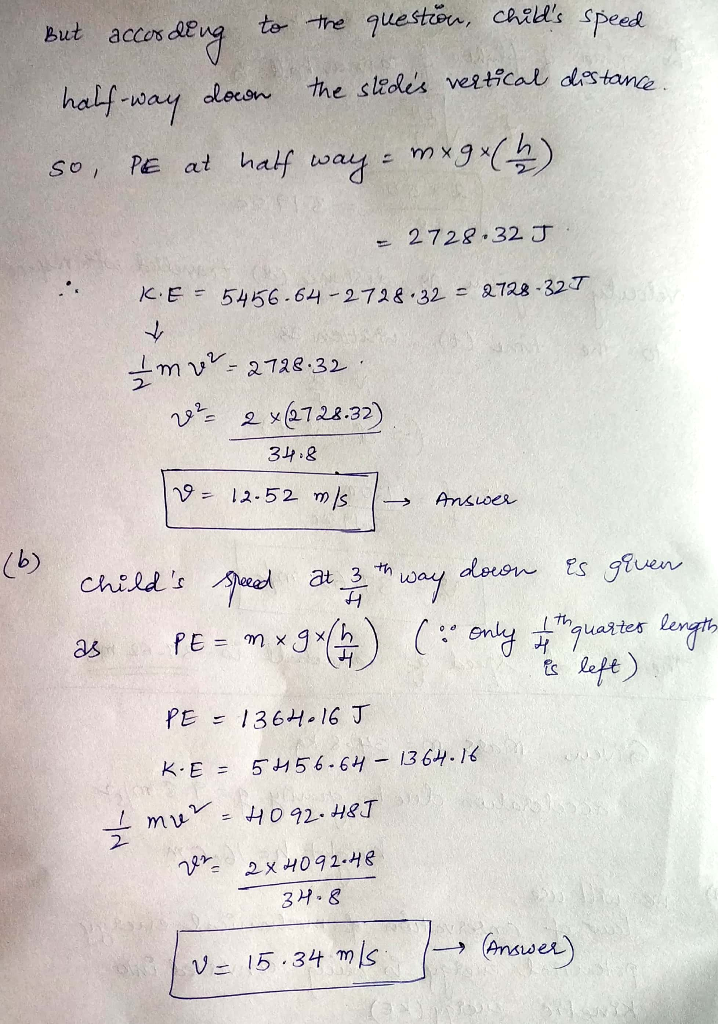 But according to the question, child's speed
half-way down the slide's vertical distance.
So, PE at half way = m×g×(h/2)
= 2728.32 J
∴ K.E = 5456.64 - 2728.32 = 2728.32J
↓
1/2 mv² = 2728.32
v² = 2×(2728.32) / 34.8
v = 12.52 m/s → Answer
(b) child's speed at 3/4 th way down is given
as PE = m×g×(h/4) (∵ only 1/4 th quarter length
is left)
PE = 1364.16 J
K.E = 5456.64 - 1364.16
1/2 mv² = 4092.48J
v² = 2×4092.48 / 34.8
v = 15.34 m/s → (Answer)